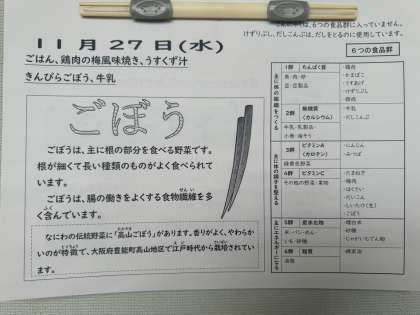 ６つの食品群に入っていません。
けずりぶし、だしこんぶは、だしをとるのに使用しています。
１１月２７日（水）
ごはん、鶏肉の梅風味焼き、うすくず汁
きんぴらごぼう、牛乳
６つの食品群
ごぼう
ごぼうは、主に根の部分を食べる野菜です。
根が細くて長い種類のものがよく食べられて
います。
ごぼうは、腸の働きをよくする食物繊維を多
く含んでいます。
なにわの伝統野菜に「高山ごぼう」があります。香りがよく、やわらか
いのが特徴で、大阪府豊能町高山地区で江戸時代から栽培されていま
す。
主に体の組織をつくる
１群 たんぱく質
魚・肉・卵
豆・豆製品
・鶏肉
・かまぼこ
・うすあげ
・けずりぶし
・豚肉
２群 無機質
（カルシウム）
牛乳・乳製品・
小魚・海そう
・牛乳
・だしこんぶ
主に体の調子を整える
３群 ビタミンA
（カロテン）
緑黄色野菜
・にんじん
・みつば
４群 ビタミンC
その他の野菜・果物
・たまねぎ
・梅肉
・はくさい
・だいこん
・しいたけ
・ごぼう
主にエネルギーになる
５群 炭水化物
米・パン・めん
いも・砂糖
・精白米
・砂糖
・じゃがいもでん粉
６群 脂質
油脂
・綿実油